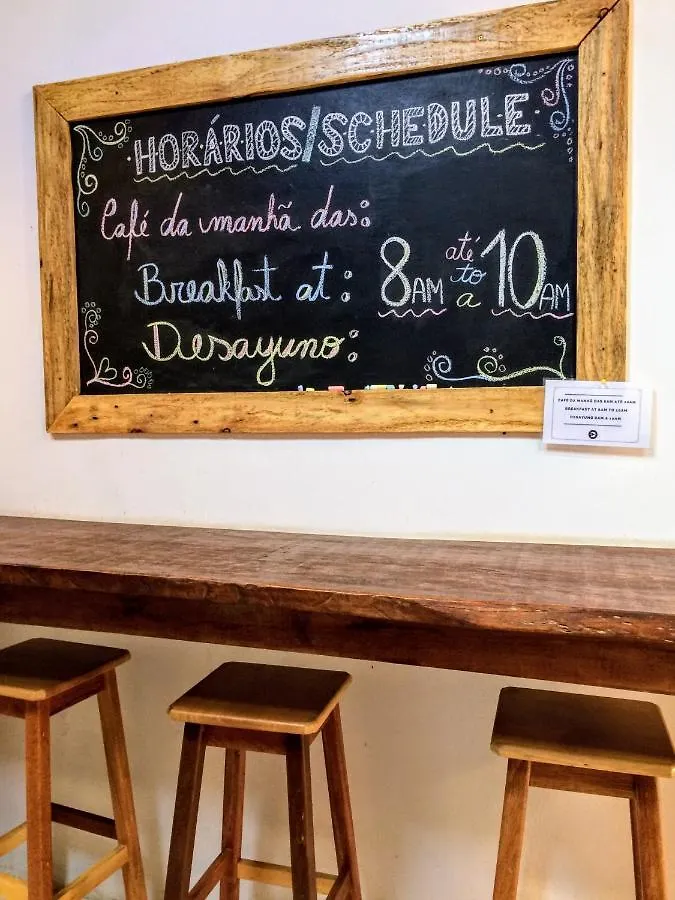 HORÁRIOS/SCHEDULE
Café da manhã das:
Breakfast at:
Desayuno:
8AM até to a 10AM
CAFÉ DA MANHÃ DAS 8AM ATÉ 10AM
BREAKFAST AT 8AM TO 10AM
DESAYUNO 8AM A 10AM